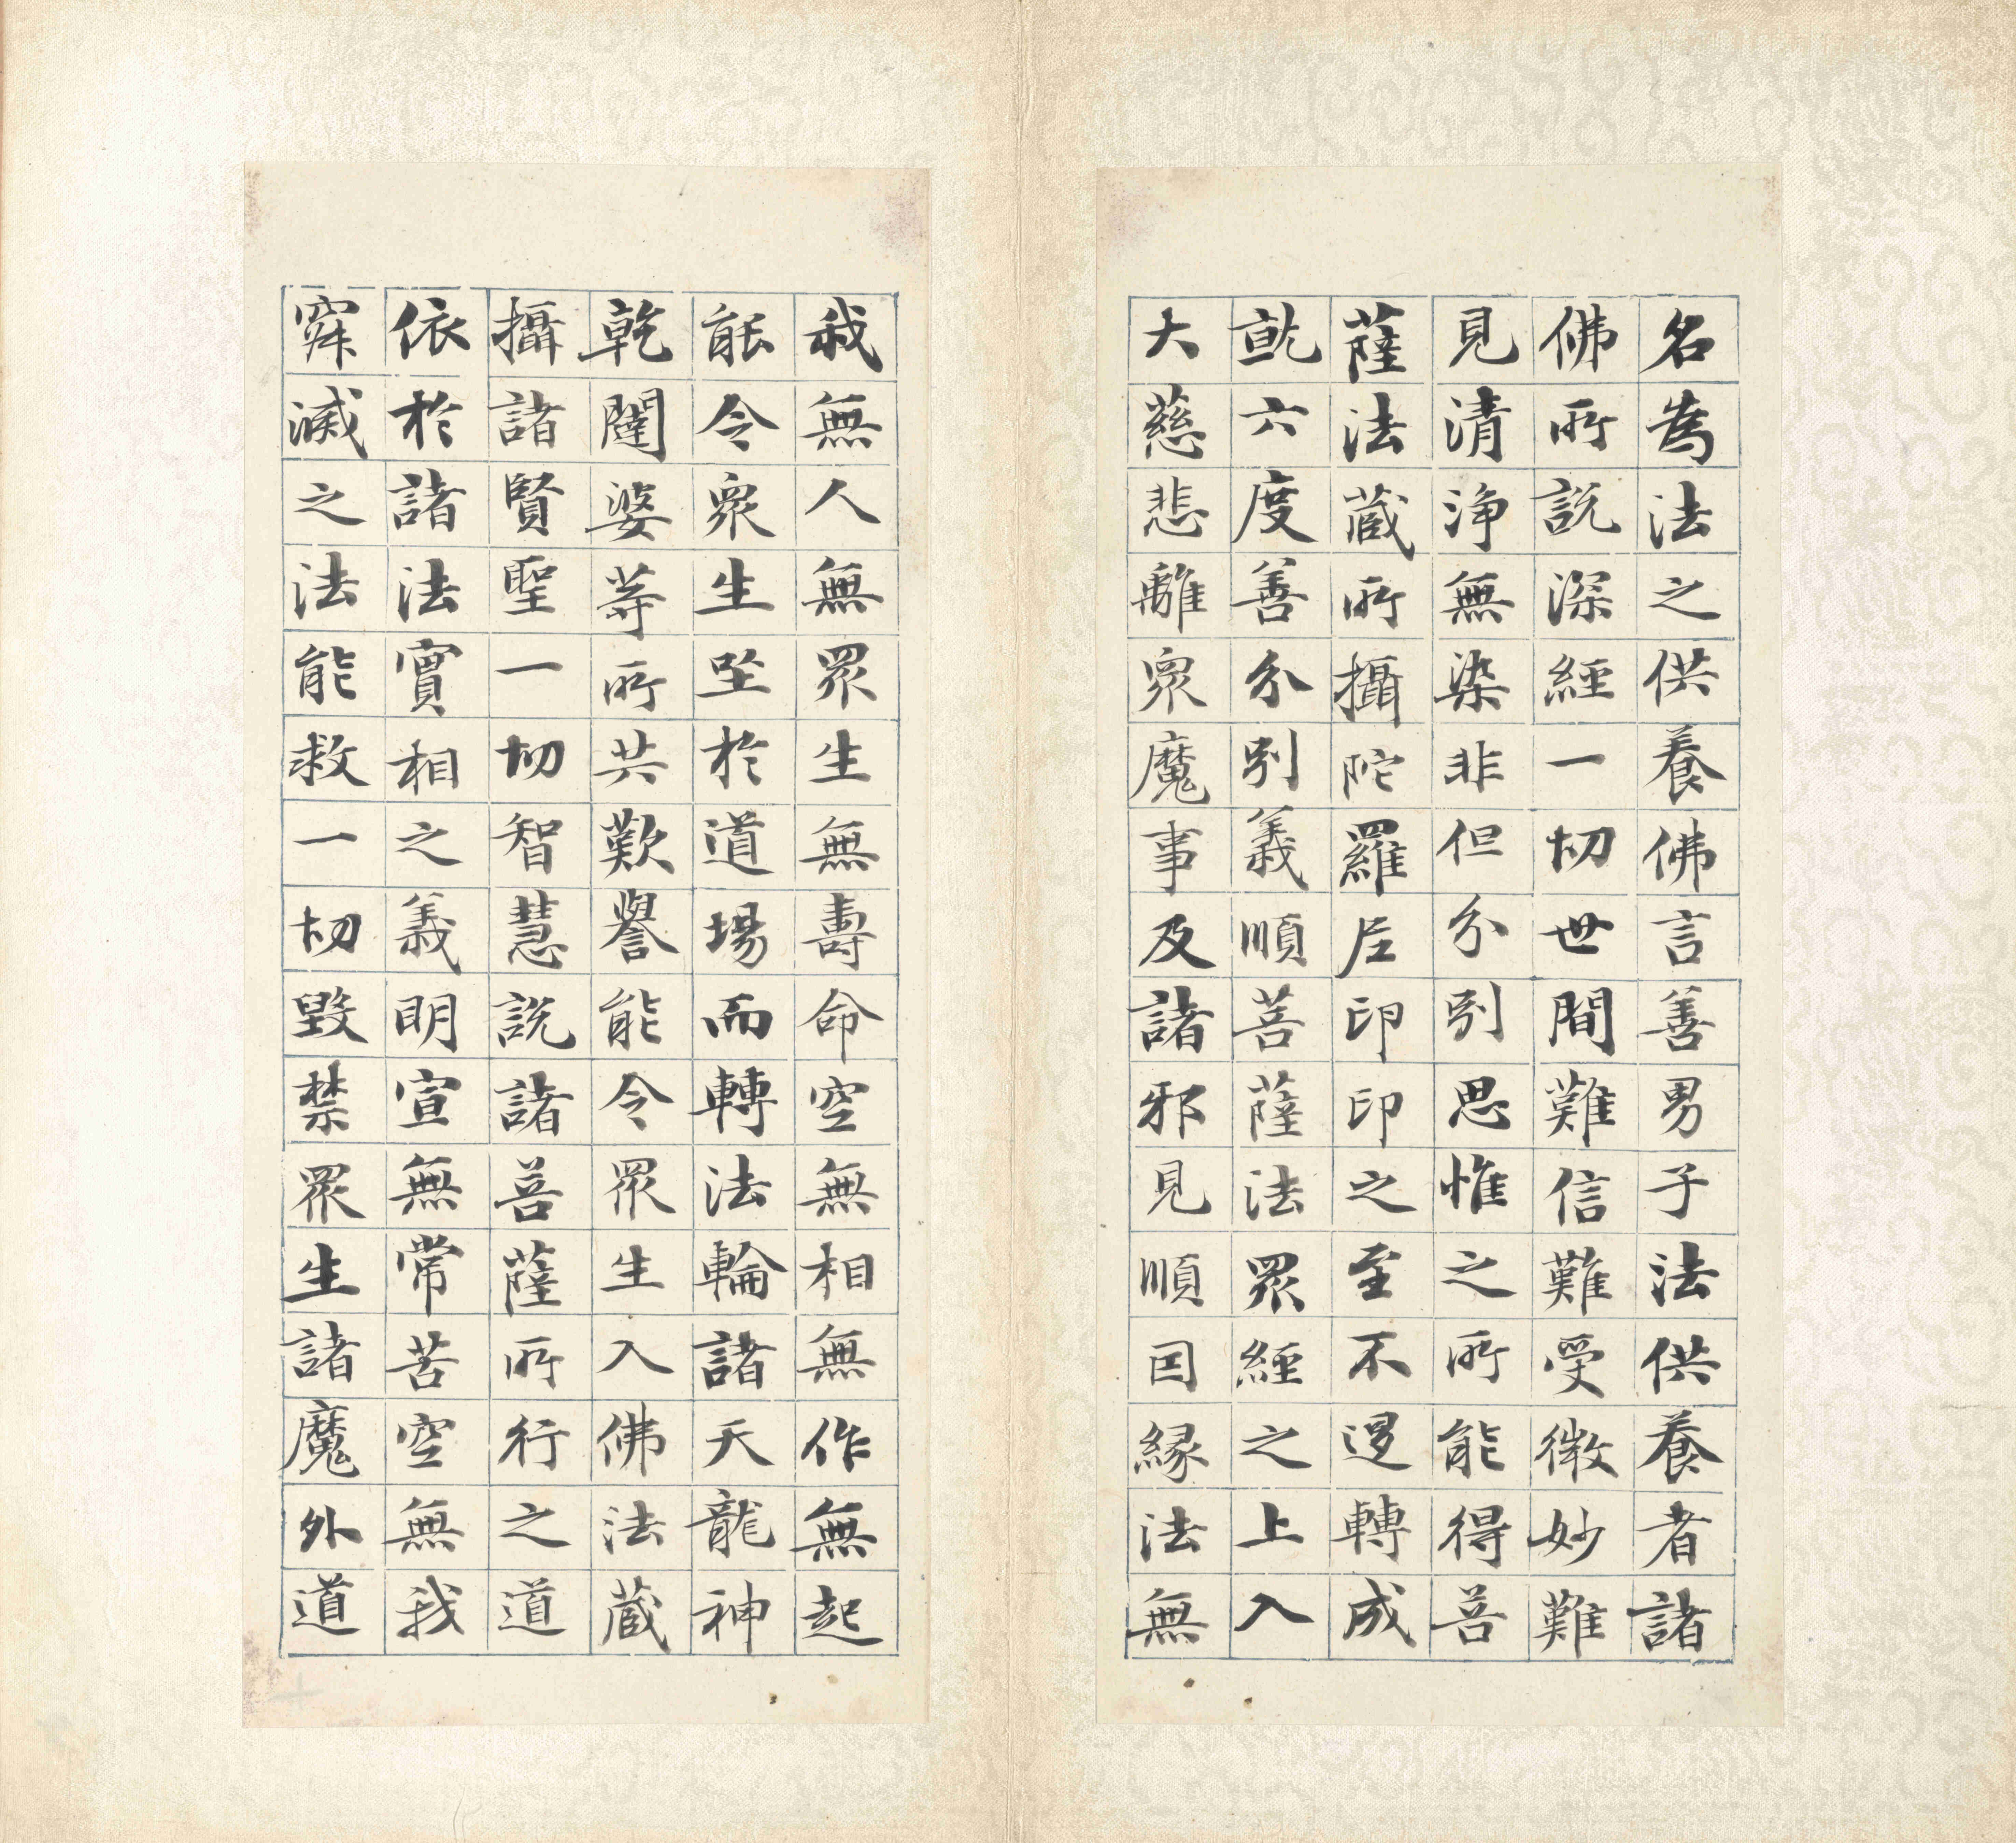 名為法之供養佛言善男子法供養者諸
佛所說深經一切世間難信難受微妙難
見清淨無染非但分別思惟之所能得菩
薩法藏所攝陀羅尼印印之至不退轉成
就六度善分別義順菩薩法眾經之上入
大慈悲離衆魔事及諸邪見順因緣法無
我無人無眾生無壽命空無相無作無起
能令衆生坐於道場而轉法輪諸天龍神
乾闥婆等所共歎譽能令眾生入佛法藏
攝諸賢聖一切智慧說諸菩薩所行之道
依於諸法實相之義明宣無常苦空無我
寂滅之法能救一切毀禁眾生諸魔外道